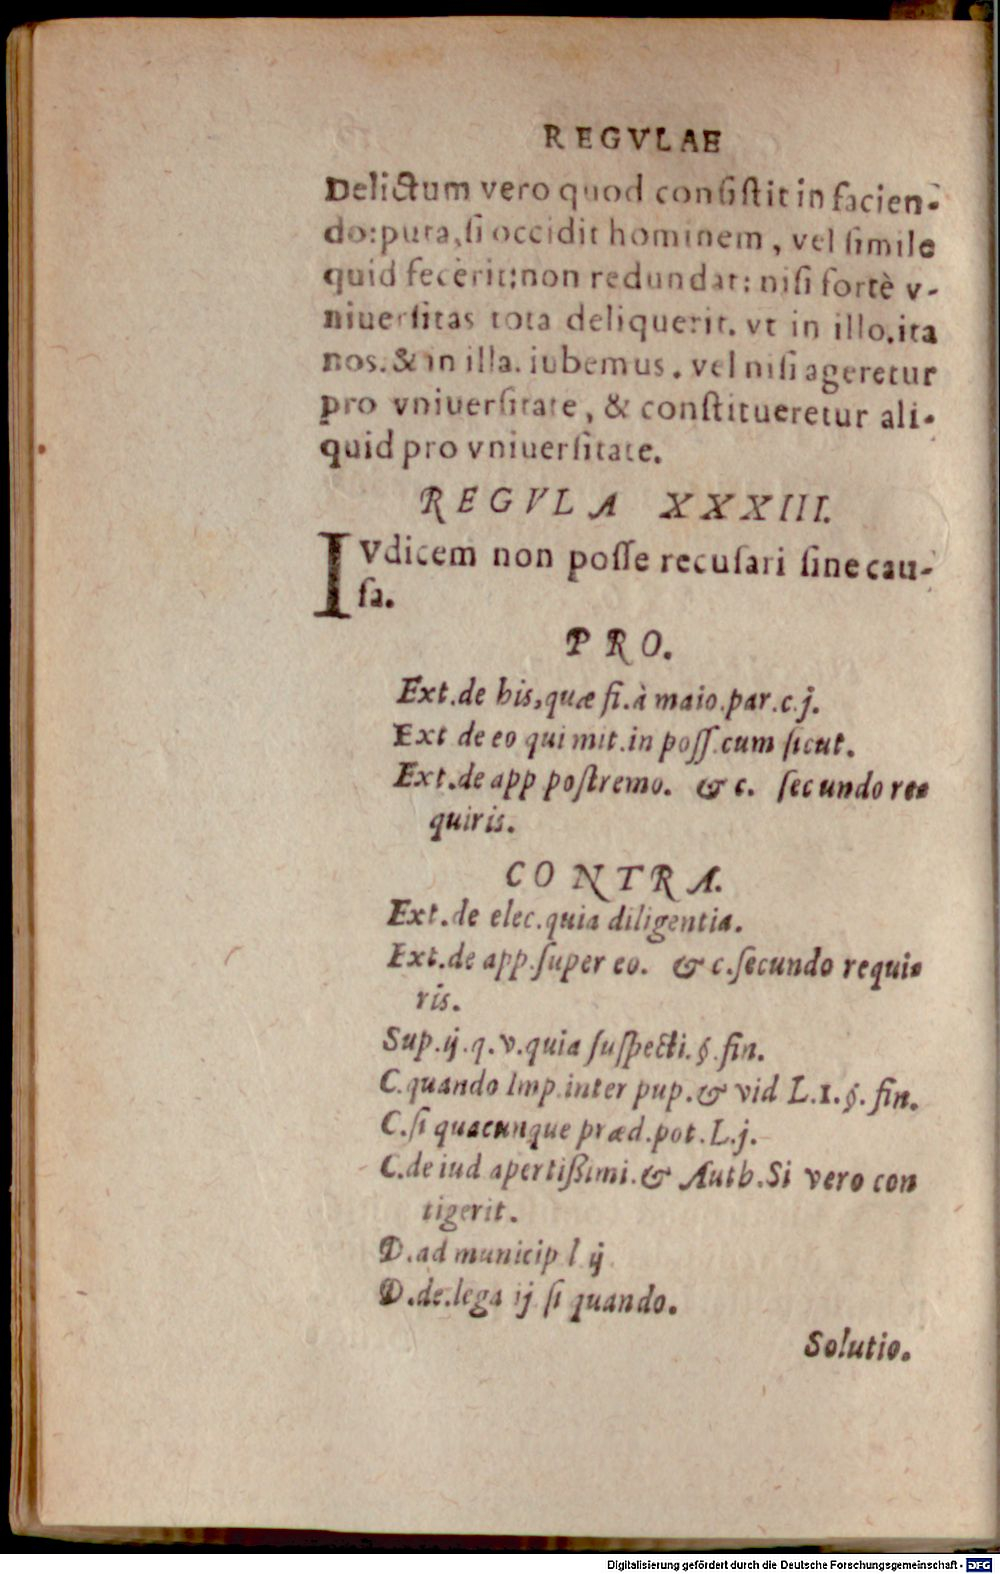 REGVLAE
Delictum vero quod consistit in facien-
do: puta, si occidit hominem, vel simile
quid fecerit: non redundat: nisi fortè v-
niuersitas tota deliquerit. vt in illo. ita
nos. & in illa. iubemus. vel nisi ageretur
pro vniuersitate, & constitueretur ali-
quid pro vniuersitate.
REGVLA XXXIII.
IVdicem non posse recusari sine cau-
sa.
PRO.
Ext. de his, quæ fi. à maio. par. c. j.
Ext de eo qui mit. in poss. cum sicut.
Ext. de app postremo. & c. secundo re-
quiris.
CONTRA.
Ext. de elec. quia diligentia.
Ext. de app. super eo. & c. secundo requi-
ris.
Sup. ij. q. v. quia suspecti. §. fin.
C. quando Imp. inter pup. & vid L. 1. §. fin.
C. si quacunque præd. pot. L. j.
C. de iud apertißimi. & Auth. Si vero con
tigerit.
D. ad municip l ij
D. de. lega ij si quando.
Solutio.
Digitalisierung gefördert durch die Deutsche Forschungsgemeinschaft - DFG